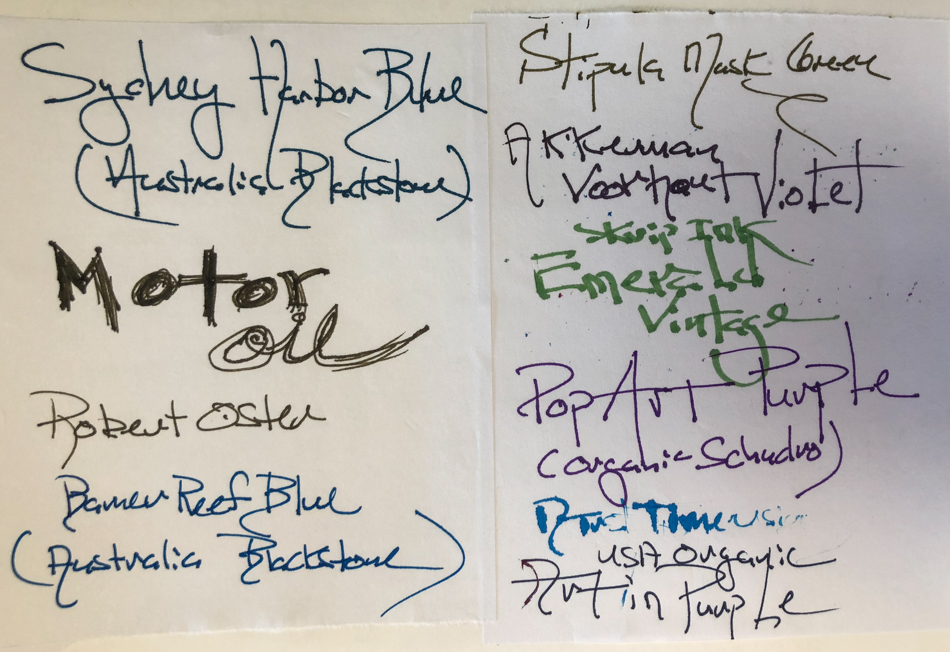 Sydney Harbor Blue
(Australia Blackstone)
Motor
oil
Robert Oster
Barrier Reef Blue
(Australia Blackstone)
Stipula Musk Green
Akkerman
Voorhout Violet
Skrip Ink
Emerald
Vintage
Pop Art Purple
(Organic Studio)
USA Organic
Art in Purple